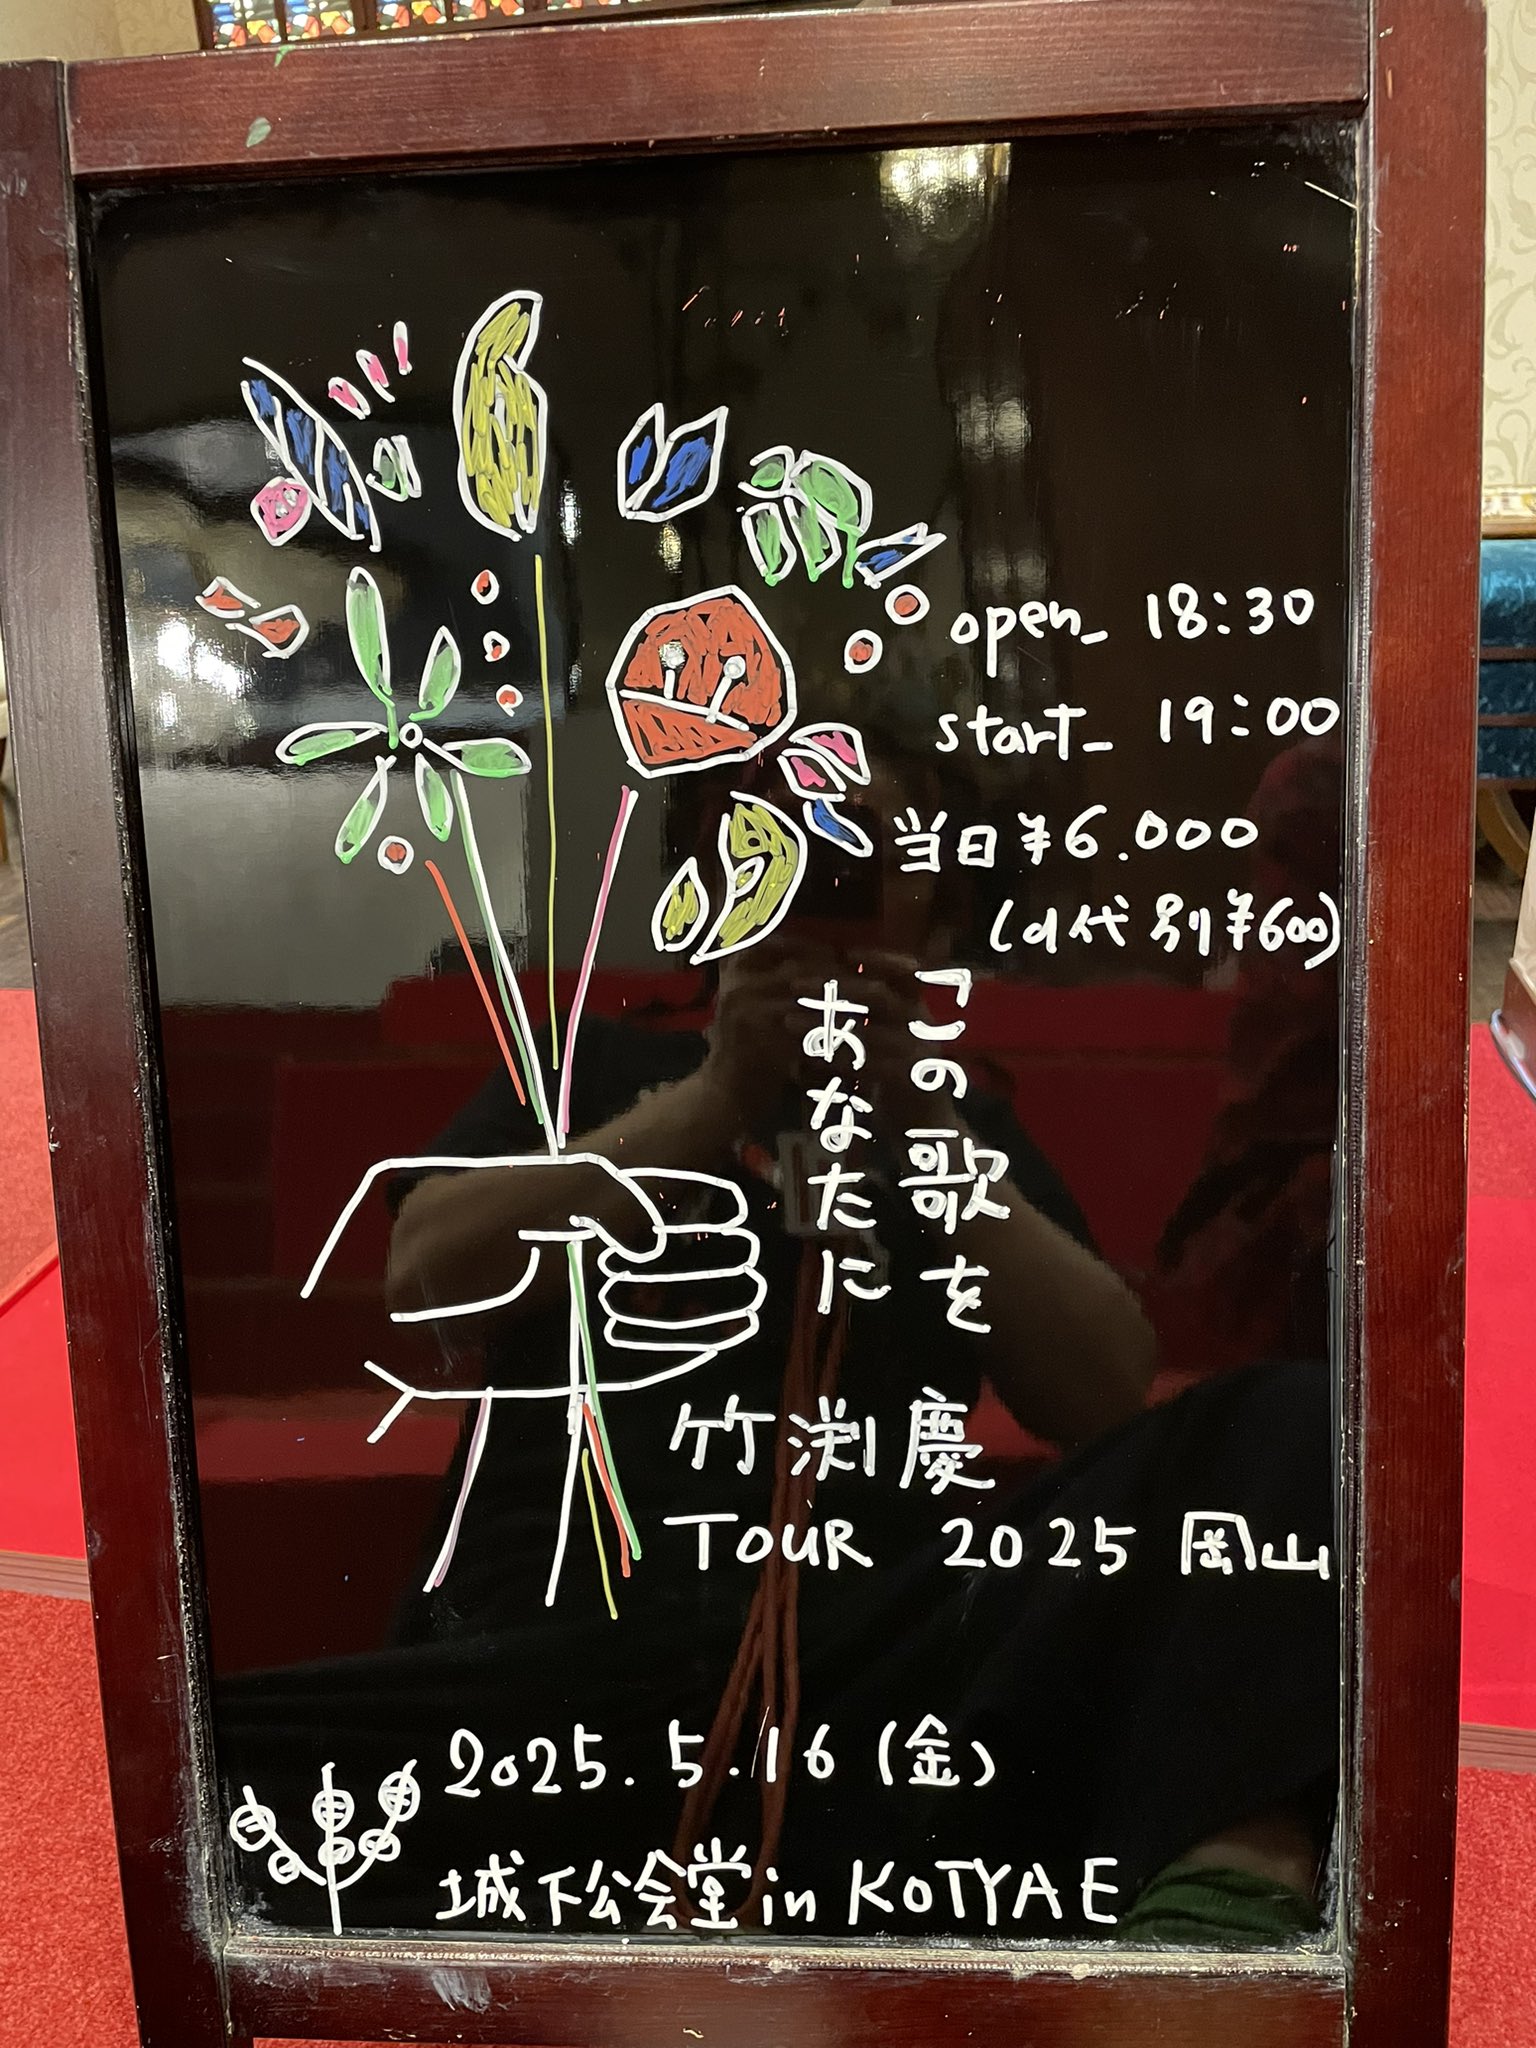 open_ 18:30
start_ 19:00
当日 ¥6.000
(d代別¥600)
「この歌を
あなたに
竹渕慶
TOUR 2025 岡山
2025.5.16(金)
城下公会堂in KOTYAE